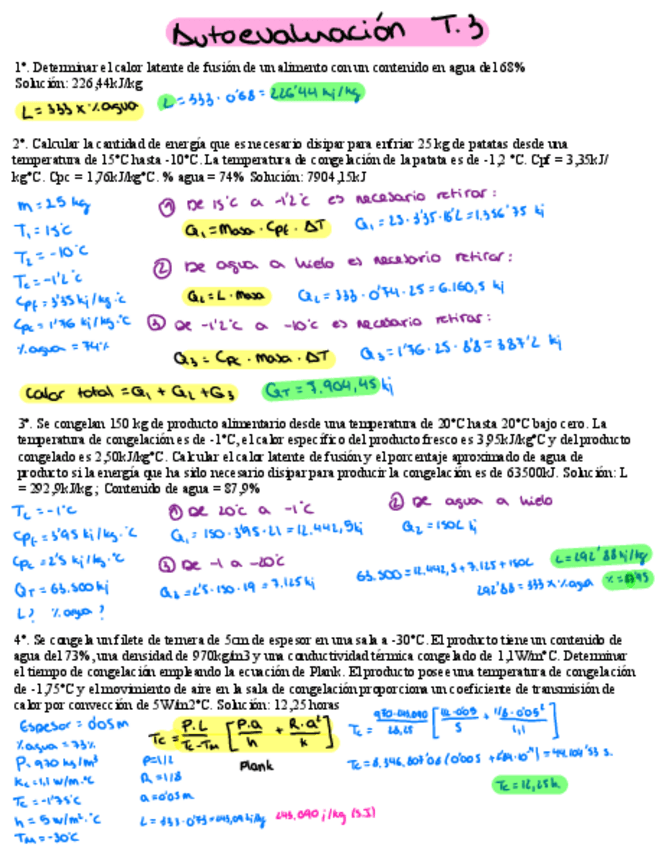 Autoevaluación T.3
1°. Determinar el calor latente de fusión de un alimento con un contenido en agua del 68%
Solución: 226,44kJ/kg
L = 333 x %agua
L = 333 · 0'68 = 226'44 kj/kg
2°. Calcular la cantidad de energía que es necesario disipar para enfriar 25 kg de patatas desde una
temperatura de 15°C hasta -10°C. La temperatura de congelación de la patata es de -1,2 °C. Cpf = 3,35kJ/
kg°C. Cpc = 1,76kJ/kg°C. % agua = 74% Solución: 7904,15kJ
m = 25 kg
T₁ = 15°C
T₂ = -10°C
Tc = -1'2°C
Cpf = 3'35 kj/kg·°C
Cpc = 1'76 kj/kg·°C
% agua = 74%
① De 15°C a -1'2°C es necesario retirar:
Q₁ = Masa · Cpf · ΔT
Q₁ = 25 · 3'35 · 16'2 = 1.356'75 kj
② De agua a hielo es necesario retirar:
Q₂ = L · Masa
Q₂ = 333 · 0'74 · 25 = 6.160,5 kj
③ De -1'2°C a -10°C es necesario retirar:
Q₃ = Cpc · masa · ΔT
Q₃ = 1'76 · 25 · 8'8 = 387'2 kj
Calor total = Q₁ + Q₂ + Q₃
QT = 7.904,45 kj
3°. Se congelan 150 kg de producto alimentario desde una temperatura de 20°C hasta 20°C bajo cero. La
temperatura de congelación es de -1°C, el calor específico del producto fresco es 3,95kJ/kg°C y del producto
congelado es 2,50kJ/kg°C. Calcular el calor latente de fusión y el porcentaje aproximado de agua de
producto si la energía que ha sido necesario disipar para producir la congelación es de 63500kJ. Solución: L
= 292,9kJ/kg; Contenido de agua = 87,9%
Tc = -1°C
Cpf = 3'95 kj/kg·°C
Cpc = 2'5 kj/kg·°C
QT = 63.500 kj
L? % agua?
① De 20°C a -1°C
Q₁ = 150 · 3'95 · 21 = 12.442,5 kj
② De agua a hielo
Q₂ = 150L kj
③ De -1 a -20°C
Q₃ = 2'5 · 150 · 19 = 7.125 kj
63.500 = 12.442,5 + 7.125 + 150L
L = 292'88 kj/kg
292'88 = 333 x % agua
4°. Se congela un filete de ternera de 5cm de espesor en una sala a -30°C. El producto tiene un contenido de
agua del 73%, una densidad de 970kg/m3 y una conductividad térmica congelado de 1,1W/m°C. Determinar
el tiempo de congelación empleando la ecuación de Plank. El producto posee una temperatura de congelación
de -1,75°C y el movimiento de aire en la sala de congelación proporciona un coeficiente de transmisión de
calor por convección de 5W/m2°C. Solución: 12,25 horas
Espesor = 0'05m
% agua = 73%
ρ = 970 kg/m³
Kc = 1,1 w/m·°C
Tc = -1'75°C
h = 5 w/m²·°C
TM = -30°C
Tc = ρ·L / Tc - TM [P·a / h + R·a² / k]
Plank
P = 1/2
R = 1/8
a = 0'05m
L = 333 · 0'73 = 243,09 kj/kg 243.090 j/kg (S.I)
Tc = 970·243.090 / 28,25 [1/2·0'05 / 5 + 1/8·0'05² / 1,1]
Tc = 12,25h